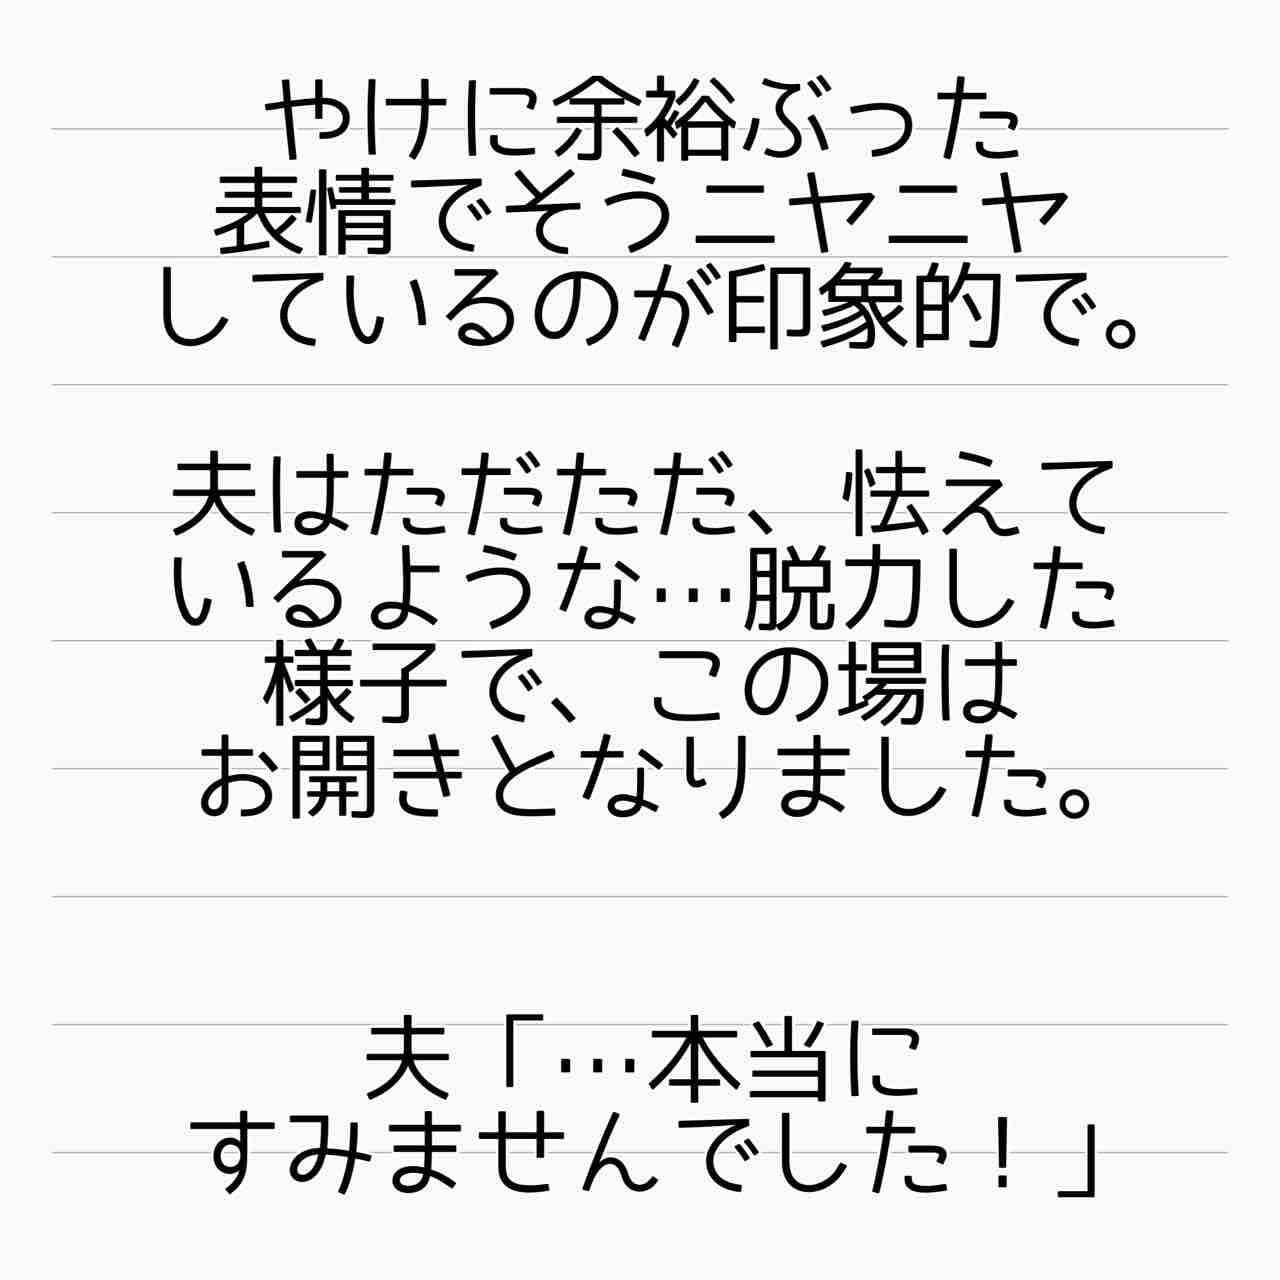 やけに余裕ぶった
表情でそうニヤニヤ
しているのが印象的で。
夫はただただ、怯えて
いるような…脱力した
様子で、この場は
お開きとなりました。
夫「…本当に
すみませんでした！」